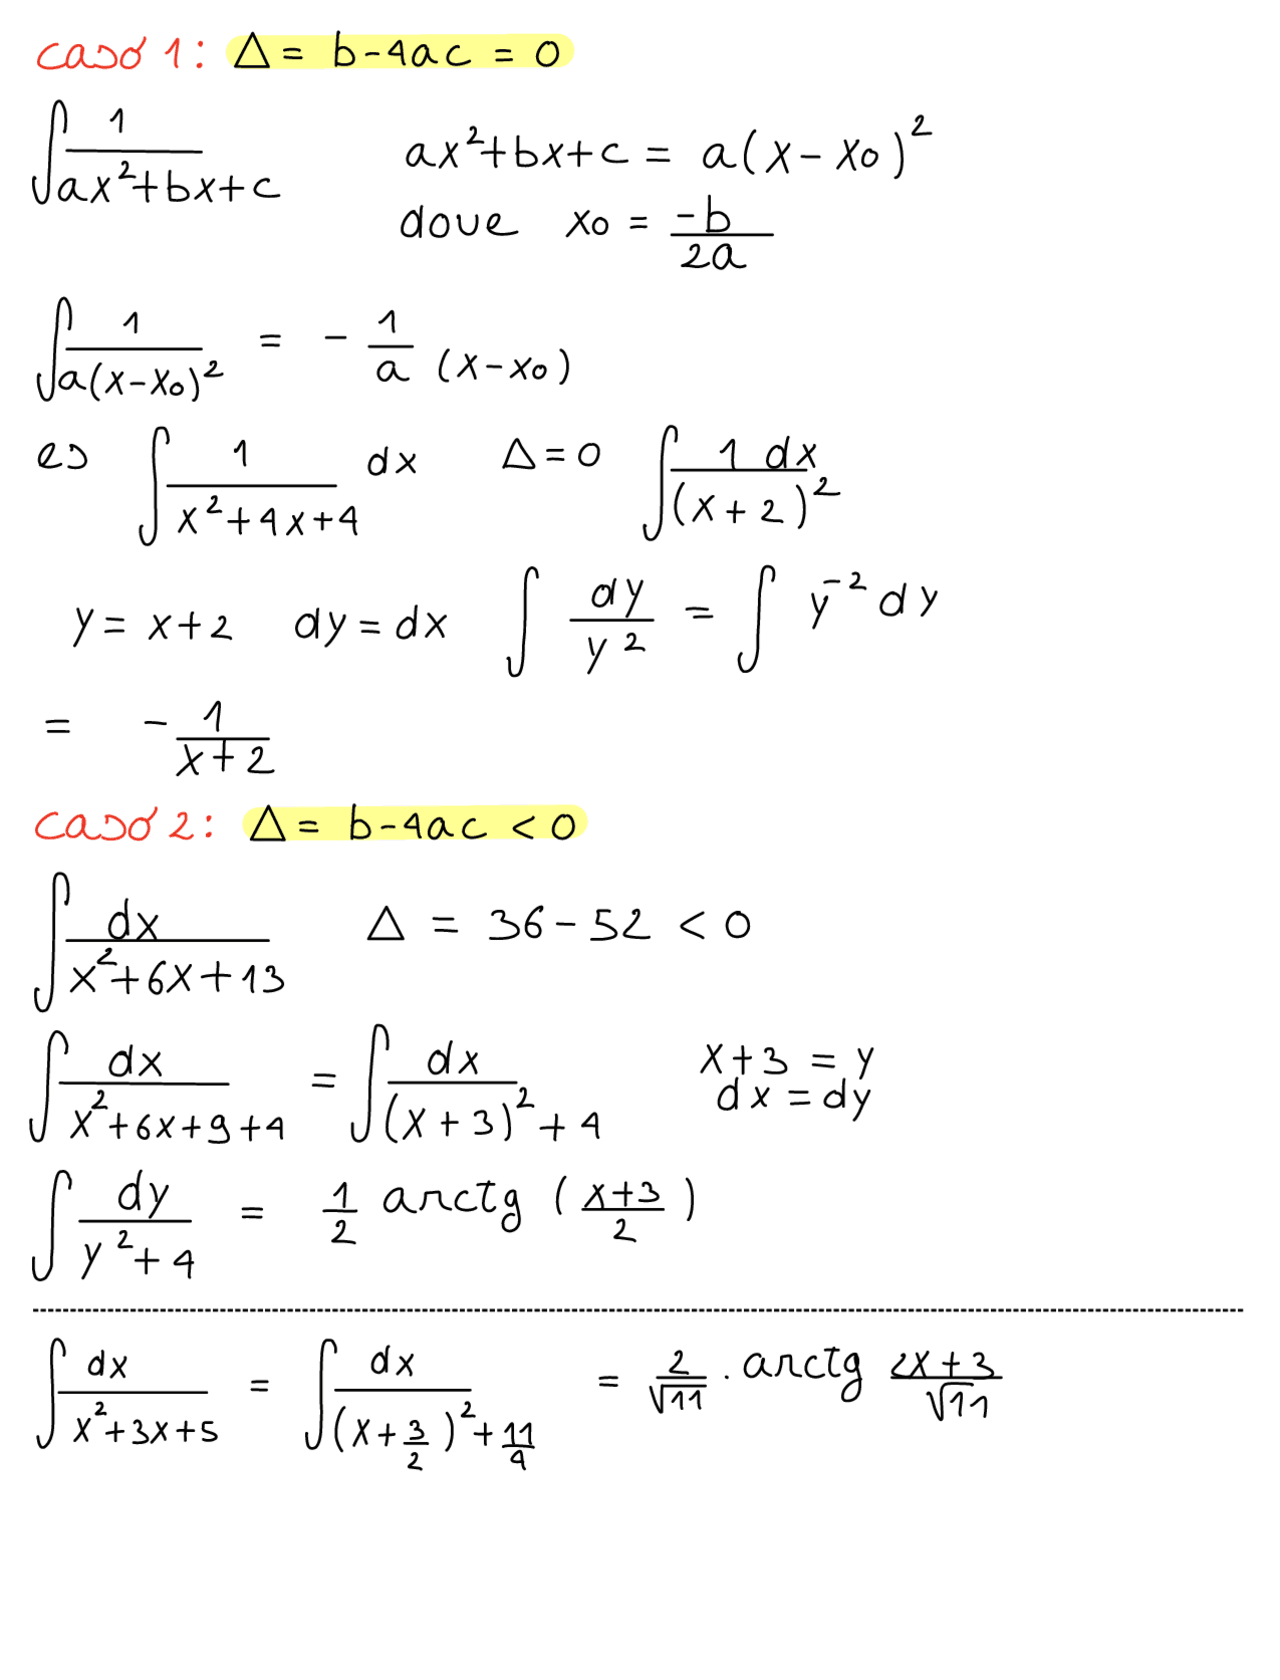 caso 1: Δ = b-4ac = 0
∫ 1/(ax²+bx+c) ax²+bx+c = a(x-x₀)²
dove x₀ = -b/2a
∫ 1/(a(x-x₀)²) = - 1/a (x-x₀)
es ∫ 1/(x²+4x+4) dx Δ=0 ∫ 1 dx/(x+2)²
y = x+2 dy = dx ∫ dy/y² = ∫ y⁻² dy
= - 1/(x+2)
caso 2: Δ = b-4ac < 0
∫ dx/(x²+6x+13) Δ = 36-52 < 0
∫ dx/(x²+6x+9+4) = ∫ dx/((x+3)²+4) x+3 = y
dx = dy
∫ dy/(y²+4) = 1/2 arctg ( (x+3)/2 )
∫ dx/(x²+3x+5) = ∫ dx/((x+3/2)²+11/4) = 2/√11 · arctg (2x+3)/√11